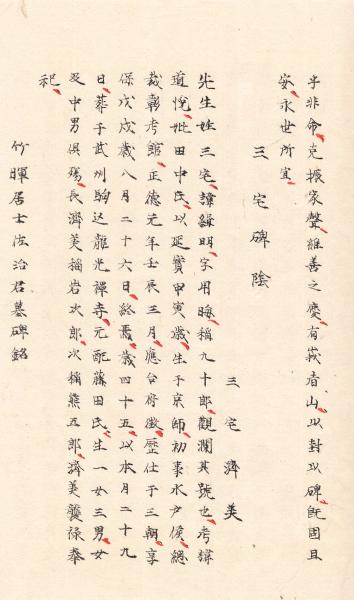 乎非命克振家聲維善之慶有嶔者山以封以碑既固且
安永世所宜
三宅碑陰
三宅濟美
先生姓三宅諱緝明字用晦稱九十郎觀瀾其號也考諱
道悅妣田中氏以延寶甲寅歲生于京師初事水戶侯總
裁彰考館正德元年壬辰三月應台府徵歷仕于三朝享
保戊戌歲八月二十六日終壽歲四十五以本月二十九
日葬于武州駒込龍光禪寺元配藤田氏生一女三男女
及中男俱殤長濟美稱岩次郎次稱熊五郎濟美襲祿奉
祀
竹暉居士佐治君墓碑銘